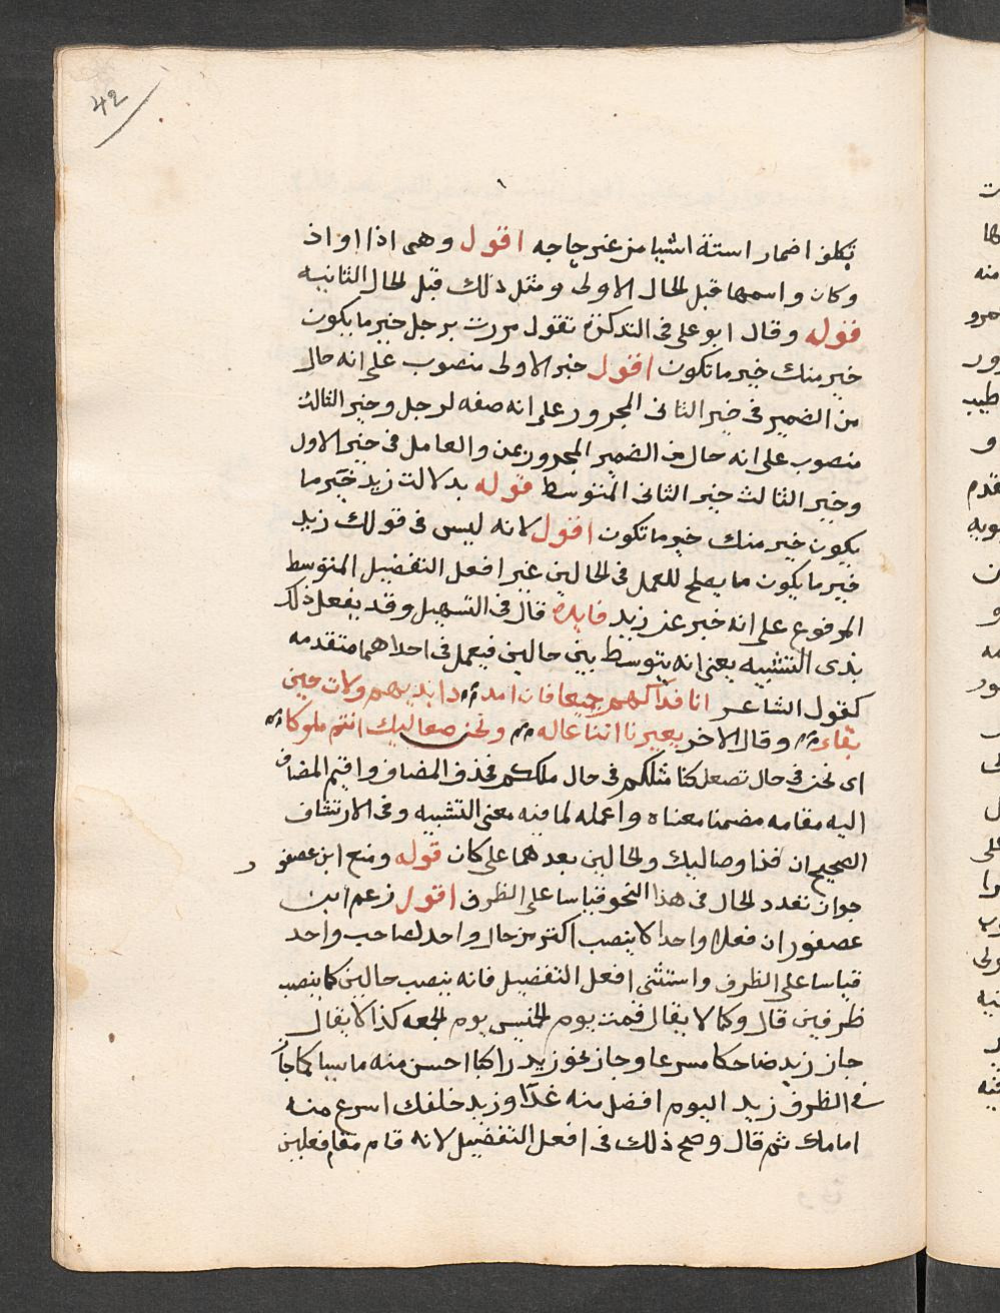 42
تكلف اضمار استة اشيا من غير حاجه اقول وهى اذا او اذ
وكان واسمها قبل الحال الاولى ومثل ذلك قبل الحال الثانيه
قوله وقال ابو على فى التذكرة تقول مررت برجل خير ما يكون
خير منك خير ما تكون اقول خير الاولى منصوب على انه حال
من الضمير فى خير الثانى المجرور على انه صفه لرجل وخير الثالث
منصوب على انه حال من الضمير المجرور بمن والعامل فى خير الاول
وخير الثالث خير الثانى المتوسط قوله بدلالت زيد خير ما
يكون خير منك خير ما تكون اقول لانه ليس فى قولك زيد
خير ما يكون ما يصلح للعمل فى الحالين غير افعل التفضيل المتوسط
المرفوع على انه خبر عن زيد فايده قال فى التسهيل وقد يفعل ذلك
بذى التشبيه يعنى انه يتوسط بين حالين فيعمل فى احداهما متقدمه
كقول الشاعر انا فذا كهم جميعا فان امد دا بديهم ولات حين
بقاء وقال الاخر يعيرنا اننا عاله ونحن صعاليك انتم ملوكا
اى نحن فى حال تصعلكنا مثلكم فى حال ملككم فحذف المضاف واقيم المضاف
اليه مقامه مضمنا معناه واعمله لما فيه معنى التشبيه وفى الارتشاف
الصحيح ان فذا وصاليك والحالين بعدهما على كان قوله ومنع ابن عصفو ر
جواز تعدد الحال فى هذا النحو قياسا على الظرف اقول زعم ابن
عصفور ان فعلا واحدا لا ينصب اكثر من حال واحد لصاحب واحد
قياسا على الظرف واستثنى افعل التفضيل فانه ينصب حالين كما ينصب
ظرفين قال وكما لا يقال قمت يوم الخميس يوم الجمعه كذا لا يقال
جاز زيد ضاحكا مسرعا وجاز نحو زيد راكبا احسن منه ماشيا كما جاز
فى الظرف زيد اليوم افضل منه غدا وزيد خلفك اسرع منه
امامك ثم قال وصح ذلك فى افعل التفضيل لانه قام مقام فعلين